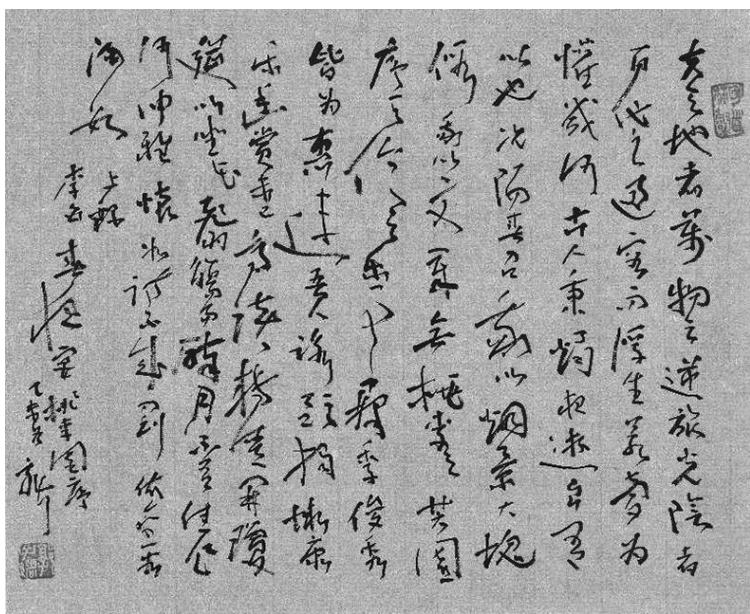 夫天地者萬物之逆旅光陰者
百代之過客而浮生若夢為
懽幾何古人秉燭夜遊良有
以也况陽春召我以烟景大塊
假我以文章會桃李之芳園
序天倫之樂事群季俊秀
皆為惠連吾人詠歌獨慚康
樂幽賞未已高談轉清開瓊
筵以坐花飛羽觴而醉月不有佳作
何伸雅懷如詩不成罰依金谷
酒數
李白春夜宴桃李園序